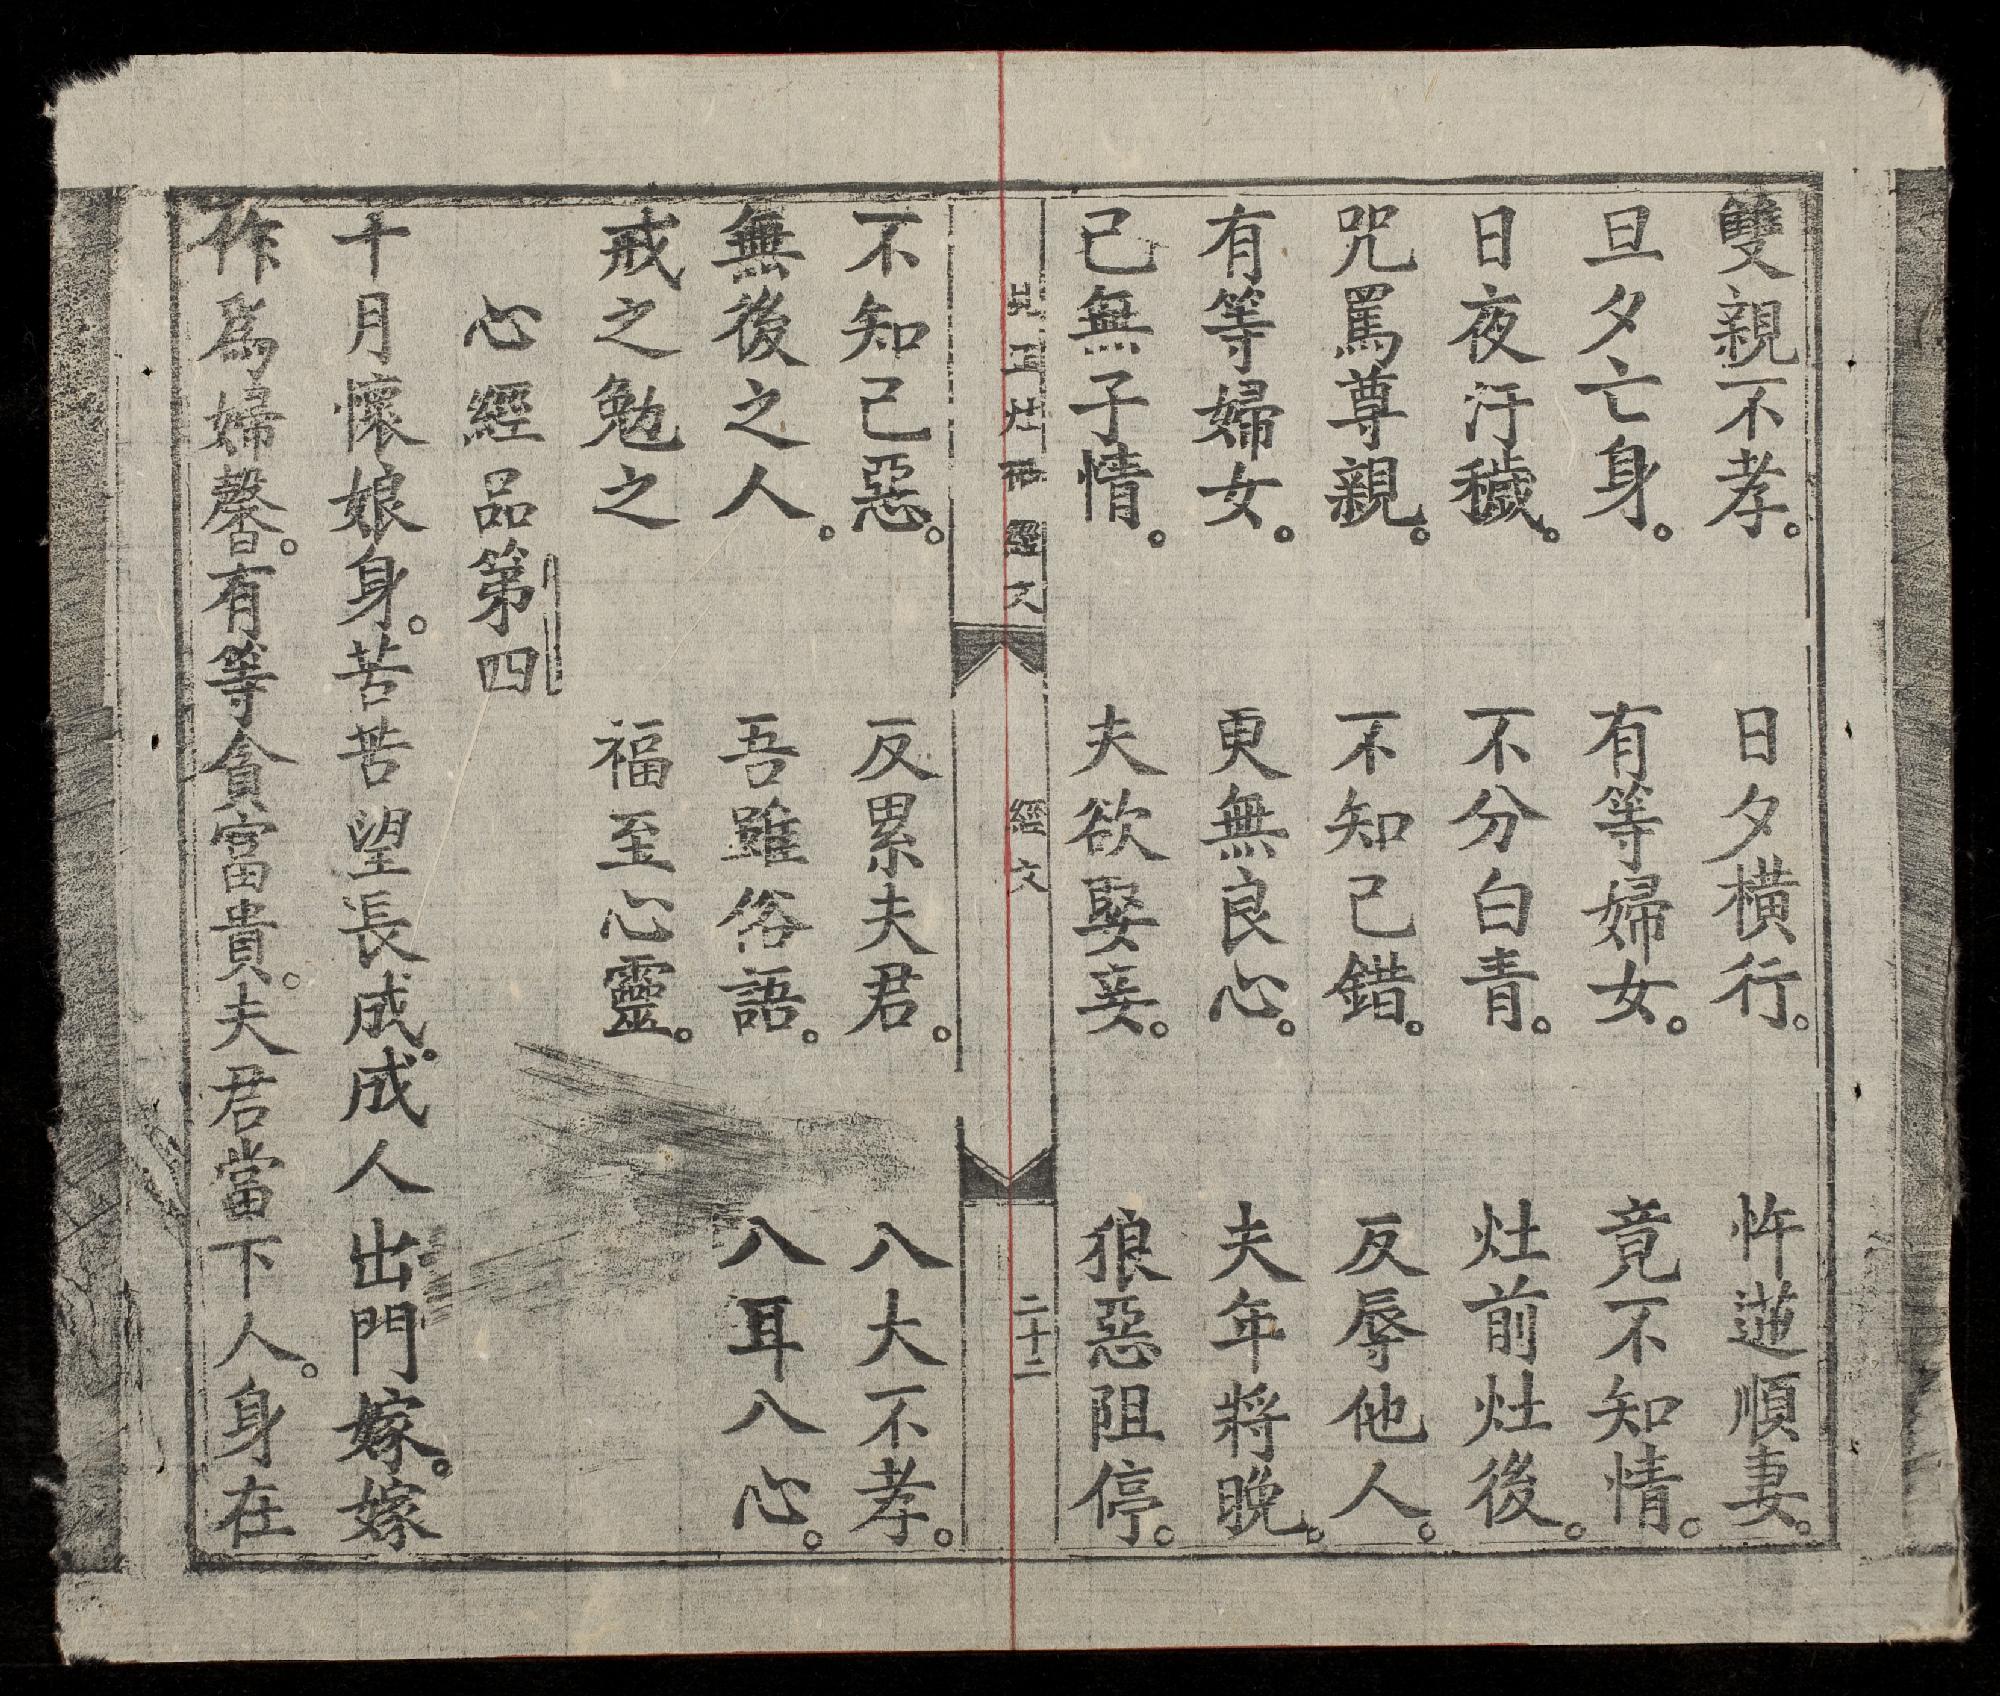 雙親不孝。日夕橫行。忤逆順妻。
旦夕亡身。有等婦女。竟不知情。
日夜汙穢。不分白青。灶前灶後。
咒罵尊親。不知己錯。反辱他人。
有等婦女。更無良心。夫年將晚。
己無子情。夫欲娶妾。狼惡阻停。
經文
經文
二十二
不知己惡。反累夫君。八大不孝。
無後之人。吾雖俗語。八耳八心。
戒之勉之福至心靈。
心經品第四
十月懷娘身。苦苦望長成。成人出門嫁。嫁
作為婦馨。有等貪富貴。夫君當下人。身在